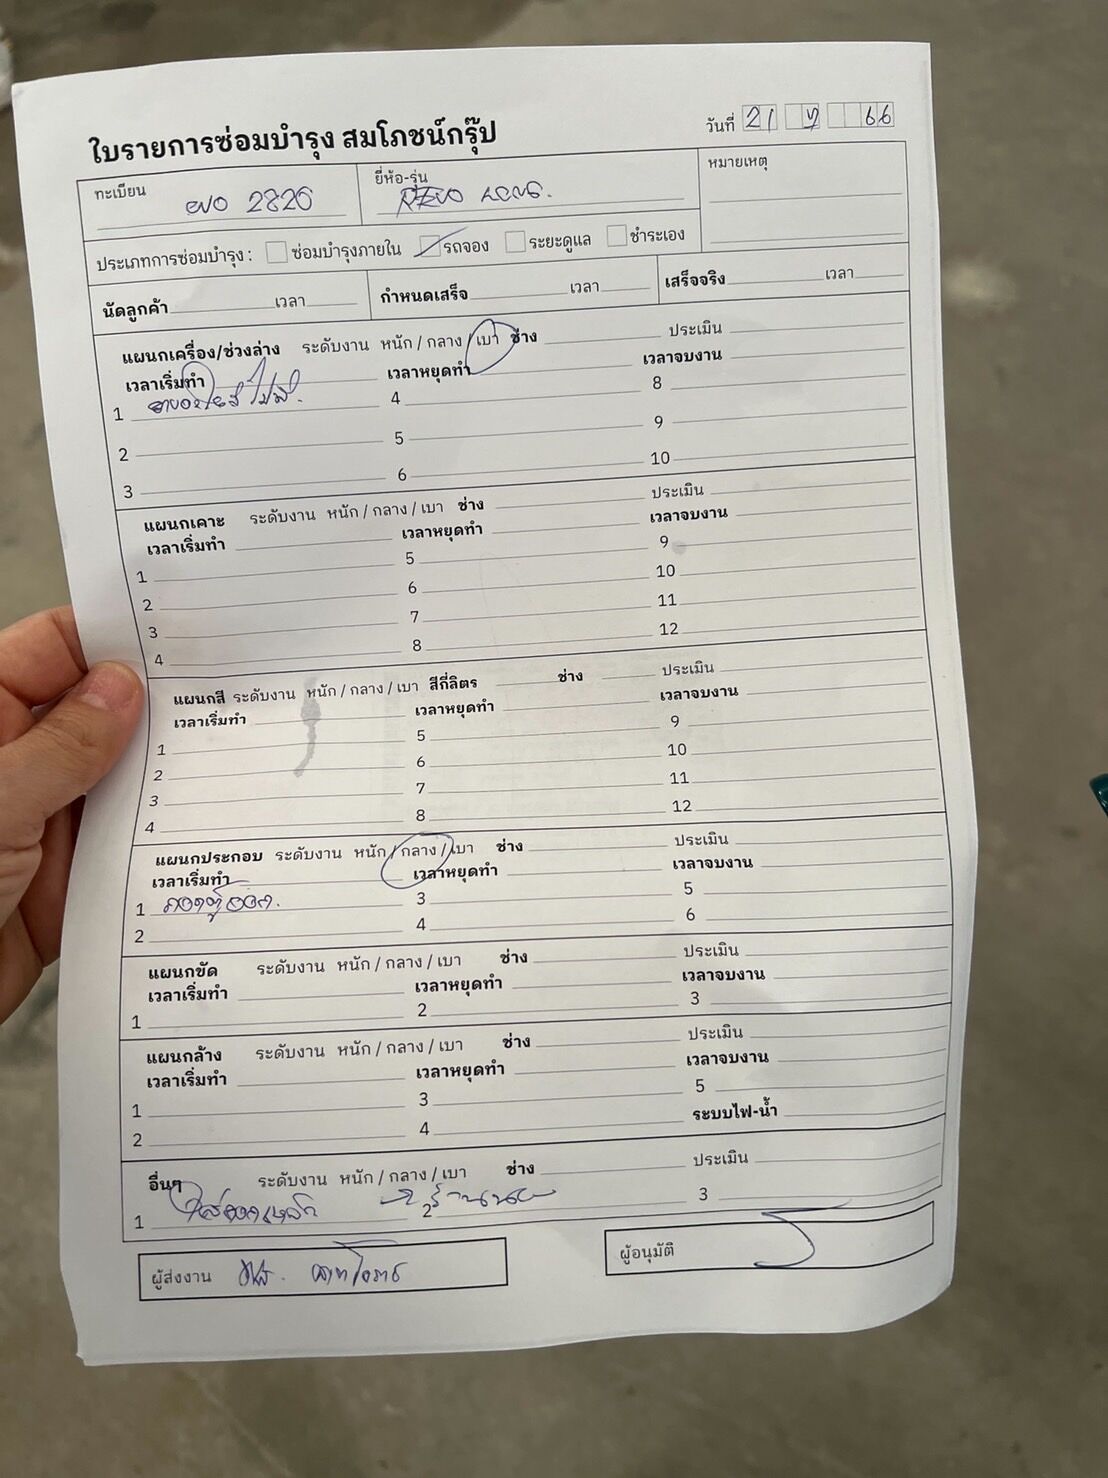 ใบรายการซ่อมบำรุง สมโภชน์กรุ๊ป
วันที่ 21 7 66
ทะเบียน 2826
ยี่ห้อ-รุ่น REVO
หมายเหตุ
ประเภทการซ่อมบำรุง : ซ่อมบำรุงภายใน รถจอง ระยะดูแล ชำระเอง
นัดลูกค้า เวลา กำหนดเสร็จ เวลา เสร็จจริง เวลา
แผนกเครื่อง/ช่วงล่าง ระดับงาน หนัก / กลาง / เบา ช่าง ประเมิน
เวลาเริ่มทำ เวลาหยุดทำ เวลาจบงาน
1 4 8
2 5 9
3 6 10
แผนกเคาะ ระดับงาน หนัก / กลาง / เบา ช่าง ประเมิน
เวลาเริ่มทำ เวลาหยุดทำ เวลาจบงาน
1 5 9
2 6 10
3 7 11
4 8 12
แผนกสี ระดับงาน หนัก / กลาง / เบา สีกี่ลิตร ช่าง ประเมิน
เวลาเริ่มทำ เวลาหยุดทำ เวลาจบงาน
1 5 9
2 6 10
3 7 11
4 8 12
แผนกประกอบ ระดับงาน หนัก / กลาง / เบา ช่าง ประเมิน
เวลาเริ่มทำ เวลาหยุดทำ เวลาจบงาน
1 ถอดตู้ออก. 3 5
2 4 6
แผนกขัด ระดับงาน หนัก / กลาง / เบา ช่าง ประเมิน
เวลาเริ่มทำ เวลาหยุดทำ เวลาจบงาน
1 2 3
แผนกล้าง ระดับงาน หนัก / กลาง / เบา ช่าง ประเมิน
เวลาเริ่มทำ เวลาหยุดทำ เวลาจบงาน
1 3 5
2 4 ระบบไฟ-น้ำ
อื่นๆ ระดับงาน หนัก / กลาง / เบา ช่าง ประเมิน
1 2 3
ผู้ส่งงาน
ผู้อนุมัติ